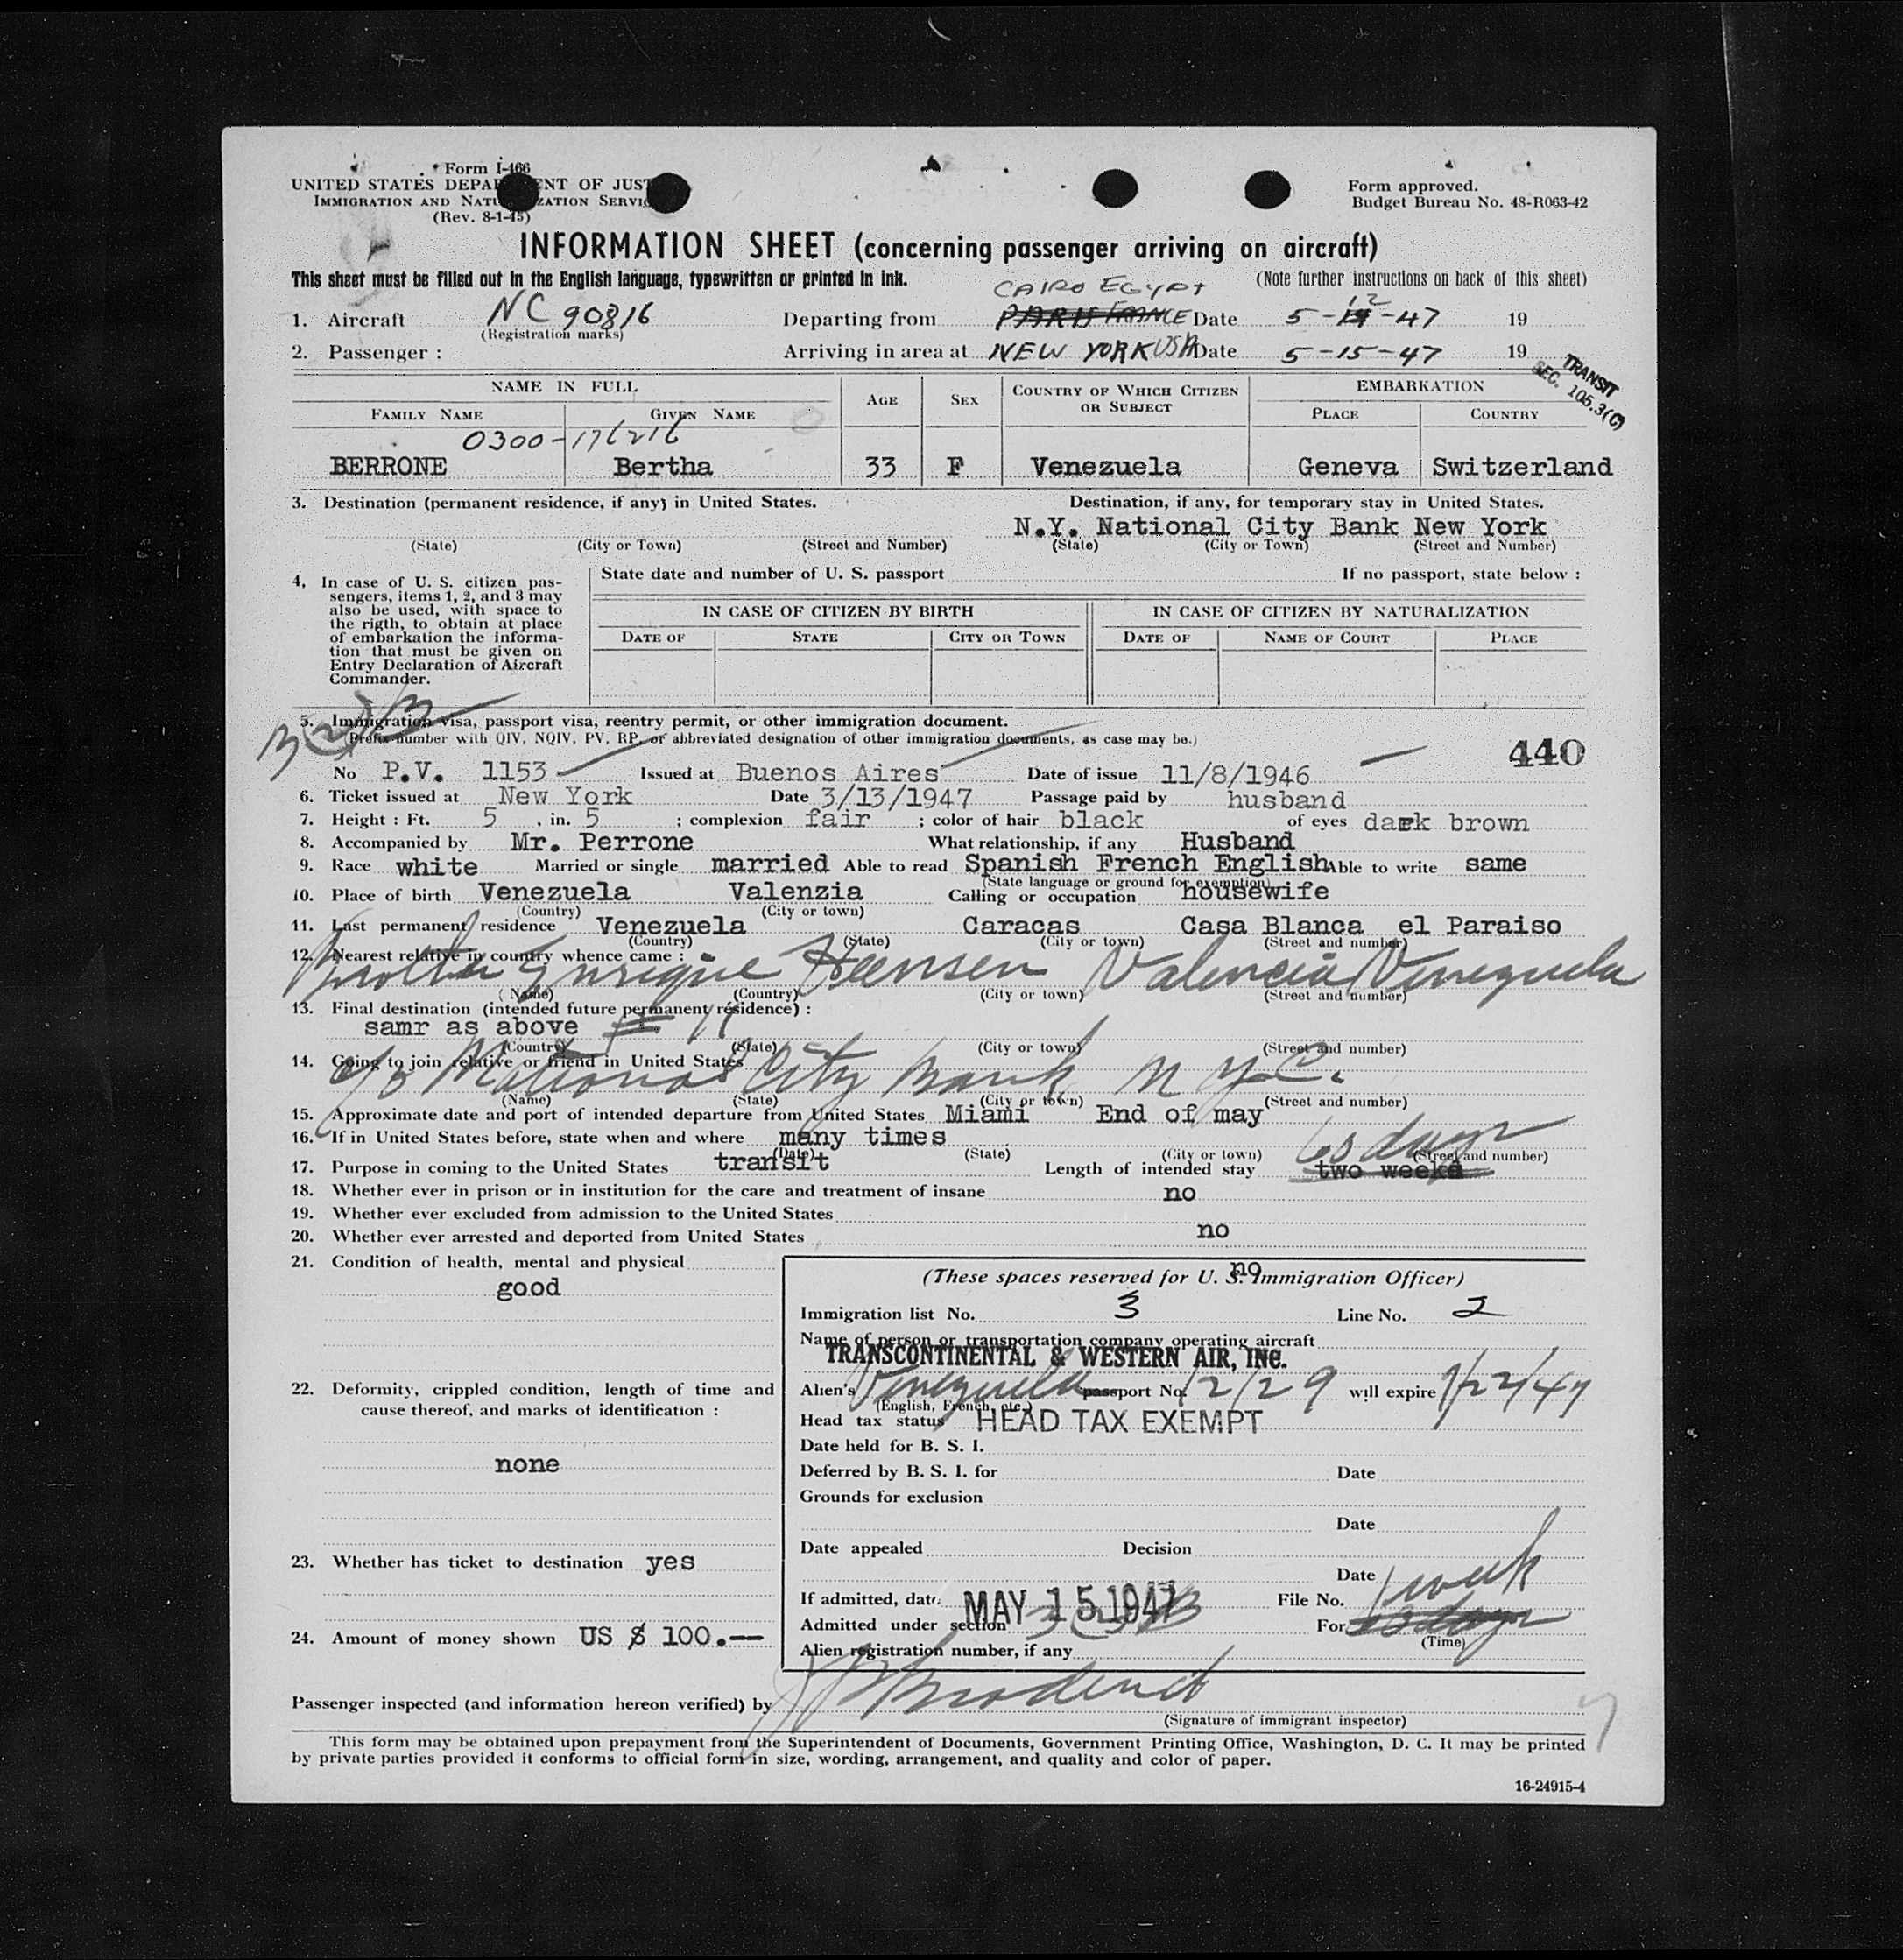 Form I-466
UNITED STATES DEPARTMENT OF JUSTICE
IMMIGRATION AND NATURALIZATION SERVICE
(Rev. 8-1-45)
Form approved.
Budget Bureau No. 48-R063-42
INFORMATION SHEET (concerning passenger arriving on aircraft)
This sheet must be filled out in the English language, typewritten or printed in ink.
(Note further instructions on back of this sheet)
CAIRO EGYPT
1. Aircraft NC 90816 Departing from PARIS FRANCE Date 5-12-47 19
(Registration marks)
2. Passenger : Arriving in area at NEW YORK USA Date 5-15-47 19
TRANSIT
SEC. 105.3(C)
NAME IN FULL AGE SEX COUNTRY OF WHICH CITIZEN OR SUBJECT EMBARKATION
FAMILY NAME GIVEN NAME PLACE COUNTRY
0300-176216
BERRONE Bertha 33 F Venezuela Geneva Switzerland
3. Destination (permanent residence, if any) in United States. Destination, if any, for temporary stay in United States.
N.Y. National City Bank New York
(State) (City or Town) (Street and Number) (State) (City or Town) (Street and Number)
4. In case of U. S. citizen pas-
sengers, items 1, 2, and 3 may
also be used, with space to
the rigth, to obtain at place
of embarkation the informa-
tion that must be given on
Entry Declaration of Aircraft
Commander.
State date and number of U. S. passport If no passport, state below :
IN CASE OF CITIZEN BY BIRTH IN CASE OF CITIZEN BY NATURALIZATION
DATE OF STATE CITY OR TOWN DATE OF NAME OF COURT PLACE
3(2)B
5. Immigration visa, passport visa, reentry permit, or other immigration document.
(Prefix number with QIV, NQIV, PV, RP, or abbreviated designation of other immigration documents, as case may be.)
440
No P.V. 1153 Issued at Buenos Aires Date of issue 11/8/1946
6. Ticket issued at New York Date 3/13/1947 Passage paid by husband
7. Height : Ft. 5 , in. 5 ; complexion fair ; color of hair black of eyes dark brown
8. Accompanied by Mr. Perrone What relationship, if any Husband
9. Race white Married or single married Able to read Spanish French English Able to write same
(State language or ground for exemption)
10. Place of birth Venezuela Valenzia Calling or occupation housewife
(Country) (City or town)
11. Last permanent residence Venezuela Caracas Casa Blanca el Paraiso
(Country) (State) (City or town) (Street and number)
12. Nearest relative in country whence came :
Brother Enrique Heensen Valencia Venezuela
(Name) (Country) (City or town) (Street and number)
13. Final destination (intended future permanent residence) :
samr as above
(Country) (State) (City or town) (Street and number)
14. Going to join relative or friend in United States
c/o National City Bank N Y C.
(Name) (State) (City or town) (Street and number)
15. Approximate date and port of intended departure from United States Miami End of may
16. If in United States before, state when and where many times
60 days
(Date) (State) (City or town) (Street and number)
17. Purpose in coming to the United States transit Length of intended stay two weeks
18. Whether ever in prison or in institution for the care and treatment of insane no
19. Whether ever excluded from admission to the United States
no
20. Whether ever arrested and deported from United States
no
21. Condition of health, mental and physical
good
22. Deformity, crippled condition, length of time and
cause thereof, and marks of identification :
none
23. Whether has ticket to destination yes
24. Amount of money shown US $ 100.—
(These spaces reserved for U. S. Immigration Officer)
Immigration list No. 3 Line No. 2
Name of person or transportation company operating aircraft
TRANSCONTINENTAL & WESTERN AIR, INC.
Alien's Venezuela passport No. 12/29 will expire 9/22/47
(English, French, etc.)
Head tax status HEAD TAX EXEMPT
Date held for B. S. I.
Deferred by B. S. I. for Date
Grounds for exclusion
Date
Date appealed Decision
Date
If admitted, date MAY 15 1947 File No.
1 week
Admitted under section 3(2)B For
(Time)
Alien registration number, if any
Passenger inspected (and information hereon verified) by
(Signature of immigrant inspector)
This form may be obtained upon prepayment from the Superintendent of Documents, Government Printing Office, Washington, D. C. It may be printed
by private parties provided it conforms to official form in size, wording, arrangement, and quality and color of paper.
16-24915-4